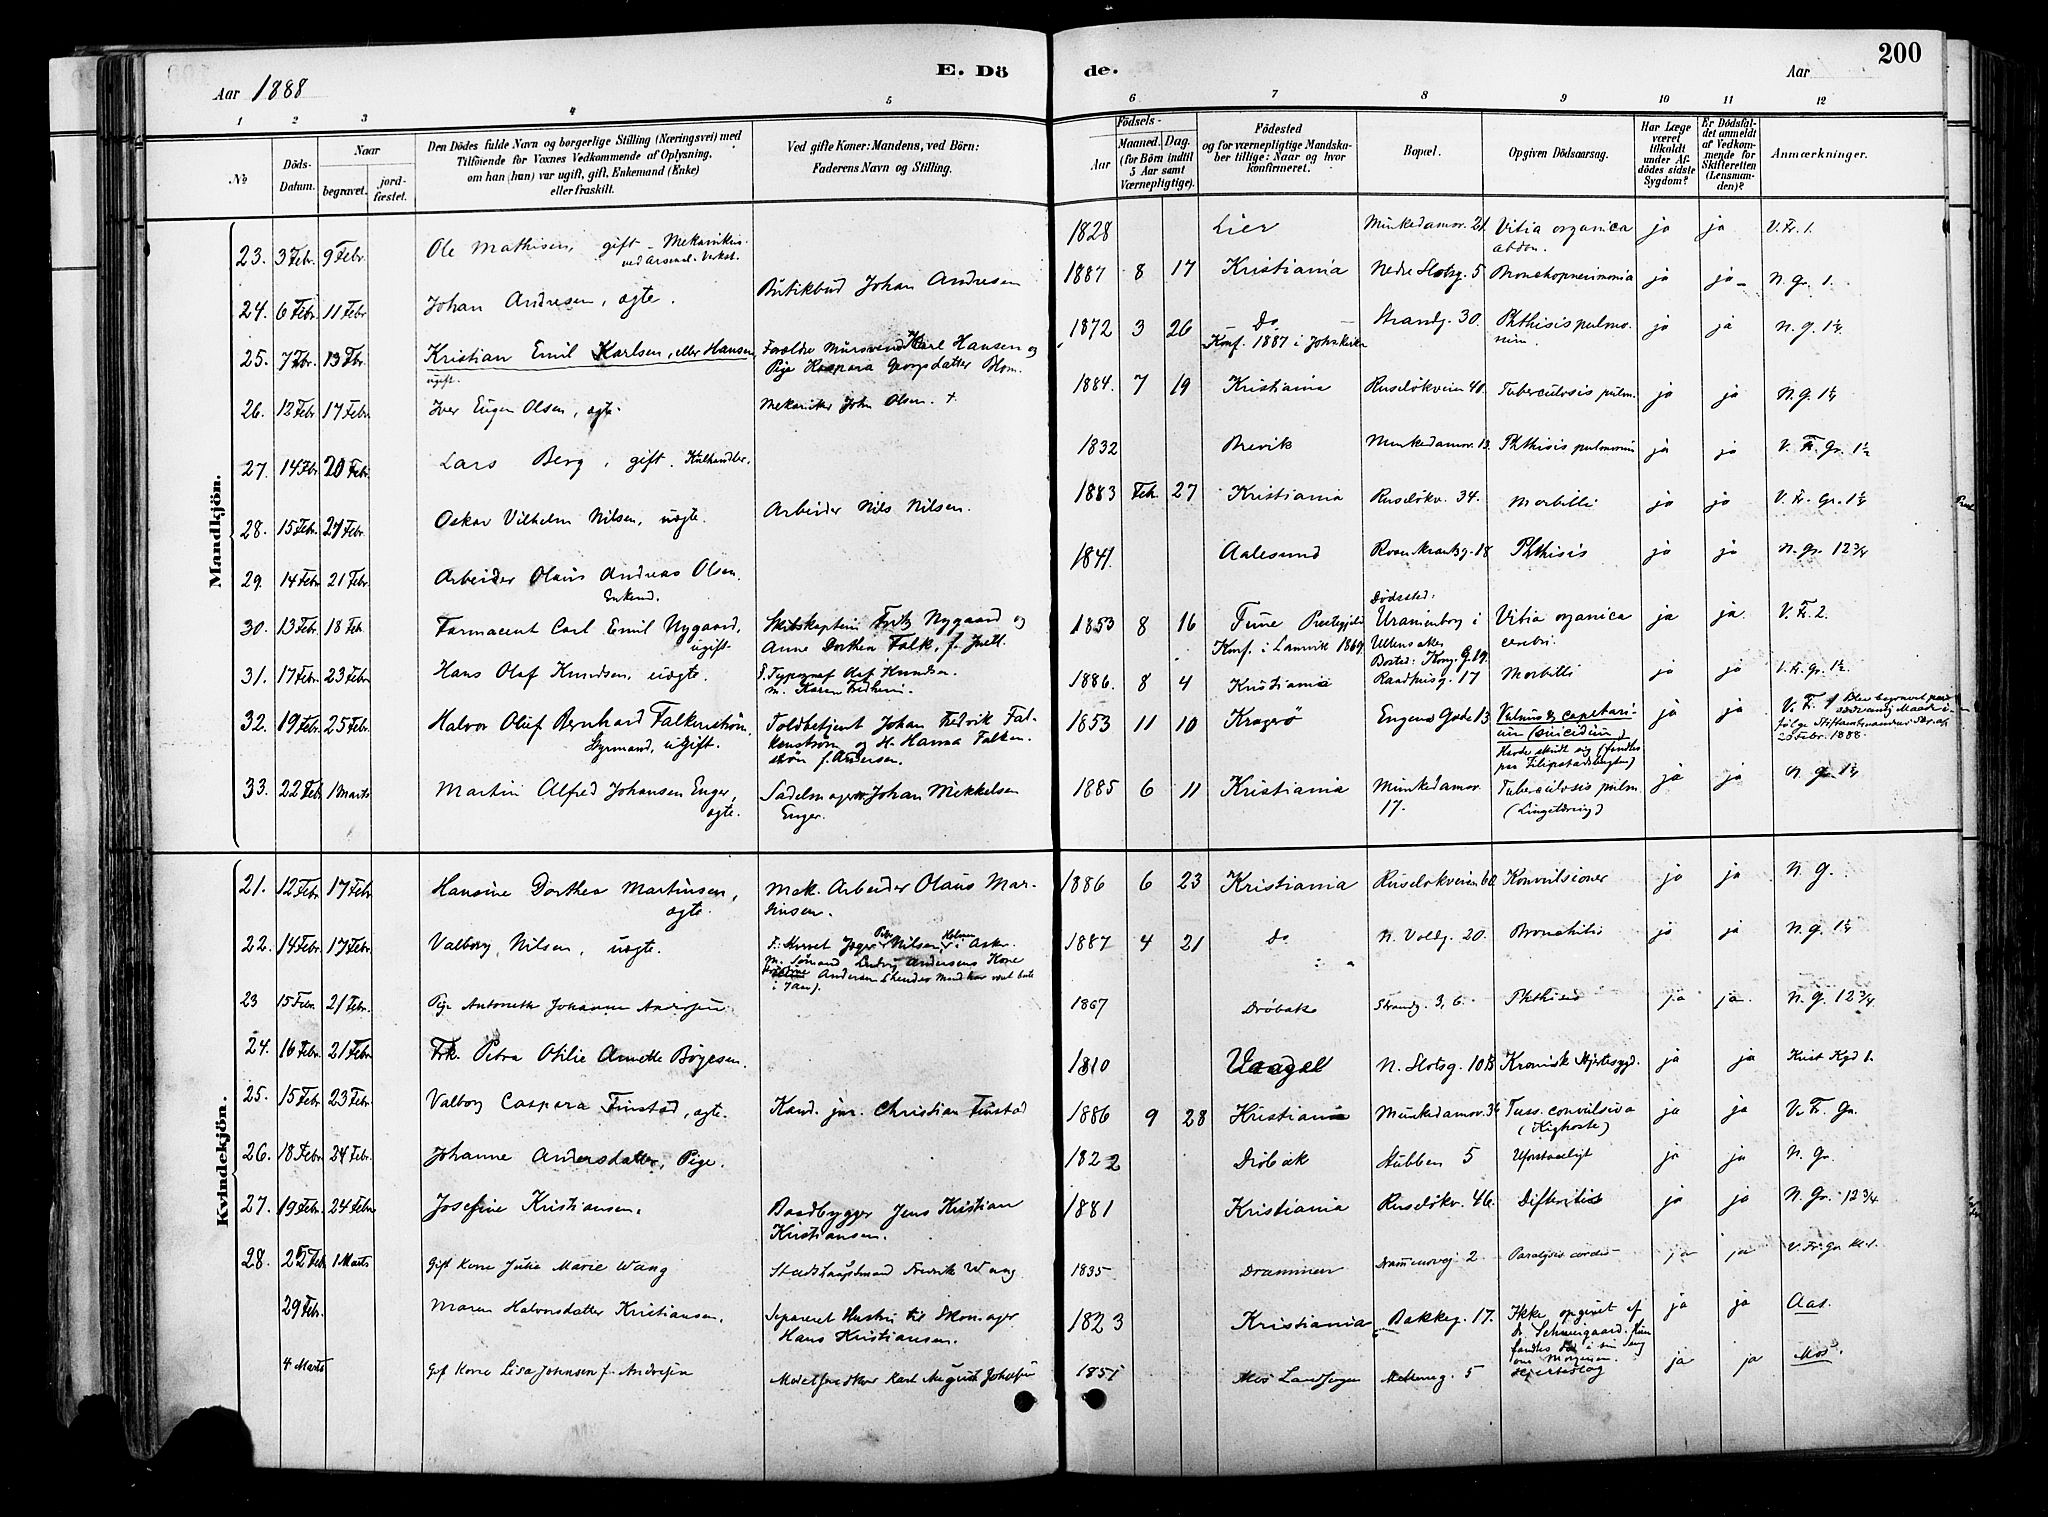 Aar 1888
E. Dö
de.
Aar
200
1 2 3 4 5 6 7 8 9 10 11 12
No
Döds-Datum.
Naar
begravet.
jord-fæstet.
Den Dödes fulde Navn og borgerlige Stilling (Næringsvei) med
Tilföiende för Voxnes Vedkommende af Oplysning,
om han (hun) var ugift, gift, Enkemand (Enke)
eller fraskilt.
Ved gifte Koner: Mandens, ved Börn:
Faderens Navn og Stilling.
Födsels-
Aar
Maaned. Dag.
(for Börn indtil
5 Aar samt
Værnepligtige).
Födested
og for værnepligtige Mandska-
ber tillige: Naar og hvor
konfirmeret.
Bopæl.
Opgiven Dödsaarsag.
Har Læge
været
tilkaldt
under Af-
dödes sidste
Sygdom?
Er Dödsfal-
det anmeldt
af Vedkom-
mende for
Skifteretten
(Lensman-
den)?
Anmærkninger.
Mandkjön.
23. 3 Febr 9 Febr. Ole Mathisen, gift - Mekanikus 1828 Lier Munkedamsv. 21. Vitia organica ja ja V. Fr. 1.
ved Arsenal-Verkst. abdom.
24. 6 Febr. 11 Febr Johan Andresen, ægte. Butikbud Johan Andresen 1887 8 17 Kristiania Nedre Slotsg. 5 Bronchopneumonia ja ja N. Gr. 1.
25. 7 Febr. 13 Febr. Kristian Emil Karlsen, eller Hansen Forældre Mursvend Karl Hansen og 1872 3 26 Do Strandg. 30. Phthisis pulmo- ja ja N. g. 1½
ugift. Pige Kaspara Georgsdatter Blom. Konf. 1887 i Johskirken num
26. 12 Febr 17 Febr Iver Eugen Olsen, ægte. Mekaniker John Olsen. + 1884. 7 19 Kristiania Ruseløkveien 40. Tuberculosis pulm. ja ja N. g. 1½
27. 14 Febr. 20 Febr. Lars Berg, gift. Kulhandler. 1832 Brevik Munkedamsv. 13. Phthisis pulmonum ja ja V. Fr. Gr. 1½
28. 15 Febr. 21 Febr. Oskar Vilhelm Nilsen, uægte. Arbeider Nils Nilsen. 1883 Feb. 27 Kristiania Ruseløkv. 34. Morbilli ja ja V. Fr. Gr. 1½
29. 14 Febr. 21 Febr. Arbeider Olaus Andreas Olsen. 1841. Aalesund Rosenkrantzg. 18 Phthisis ja ja N. Gr. 12 3/4
Enkem.
30. 13 Febr 18 Feb. Farmaceut Carl Emil Nygaard, Skibskaptein Fritz Nygaard og 1853 8 16 Tune Prestegjeld Dødssted: Uranienborg i Vitia organica ja ja. V. Fr. 2.
ugift. Anne Dorthea Falk, Konf. i Lanvik 1869 Ullensaker. cerebri.
Bosted: Kong. G. 19.
31. 17 Febr. 23 Febr Hans Olaf Knudsen, uægte. F. Typograf Olaf Knudsen. 1886. 8 4 Kristiania Raadhusg. 17 Morbilli ja ja V. Fr. Gr. 1½
m. Karen
32. 19 Febr. 25 Febr. Halvor Oluf Bernhard Falkenstrøm, Toldbetjent Johan Fredrik Fal- 1853 11 10 Kragerø Eugens Gade 13 Vulnus capitari- ja ja V. Fr. Blev begravet paa
Styrmand, ugift. kenstrøm og H. Hanna Falken- um (suicidium) sædvanlig Maade i-
strøm f. Andersen. Havde skudt sig (fandtes følge Stiftamtmandens Skr. af
paa Filipstadsbugten) 25 Febr. 1888.
33. 22 Febr. 1 Marts Martin Alfred Johansen Enger, Sadelmager Johan Mikkelsen 1885 6 11 Kristiania Munkedamsv. Tuberculosis pulm. ja ja N. Gr. 1½
ægte. Enger. 17. (Lungetæring)
Kvindekjön.
21. 12 Febr 17 Febr Hansine Dorthea Martinsen, Mek. Arbeider Olaus Mar- 1886 6 23 Kristiania Ruseløkveien 60 Konvulsioner ja ja N. G.
ægte. tinsen.
22. 14 Febr. 17 Febr. Valborg Nilsen, uægte. F. Jæger Nilsen, i Asker. 1887 4 21 Do N. Voldg. 20. Bronchitis ja ja N. g. 1½
m. Sømand Ludvig Andersens Kone
Andersen (hendes Mand har været borte
i 7 Aar).
23 15 Febr. 21 Febr. Pige Antonette Johanne Andersen 1867 Drøbak Strandg. 3, 6. Phthisis ja ja. N. G. 12 3/4
24. 16 Febr 21 Febr Frk. Petra Otilie Annette Bøgesen. 1810 N. Slotsg. 10B Kronisk Hjertesygd. ja ja Krist Kgd 1.
25. 15 Febr 23 Febr. Valborg Caspara Finstad, ægte. Kand. jur. Christian Finstad 1886 9 28 Kristiania Munkedamsv. 34 Tuss. convulsiva ja ja V. Fr. Gr.
(Kighoste)
26. 18 Febr 24 Febr. Johanne Andersdatter, Pige. 1822 Drøbak Stubben 5 ja ja N. Gr.
27. 19 Febr. 24 Febr Josefine Kristiansen. Baadbygger Jens Kristian 1881 Kristiania Ruseløkv. 46. Difteritis ja ja N. Gr. 12 3/4
Kristiansen.
28. 25 Febr 1 Marts Gift Kone Julie Marie Wang Stadshauptmand Fredrik Wang 1835 Drammen Drammensvej 2 Paralysis cordis ja ja V. Fr. Gr. Kl. 1.
29 Febr. Maren Halvorsdatter Kristiansen. Separeret Hustru til Skomager 1823 Kristiania Bakkeg. 17. Ikke opgivet af ja ja Aas.
Hans Kristiansen. Dr. Schweigaard. Hun
fandtes død i sin Seng
om Morgenen.
4 Marts Gift Kone Lisa Johnsen f. Andresen Karl August Johnsen 1851 Mos Landsogn 5 Hjerteslag ja ja Mos.